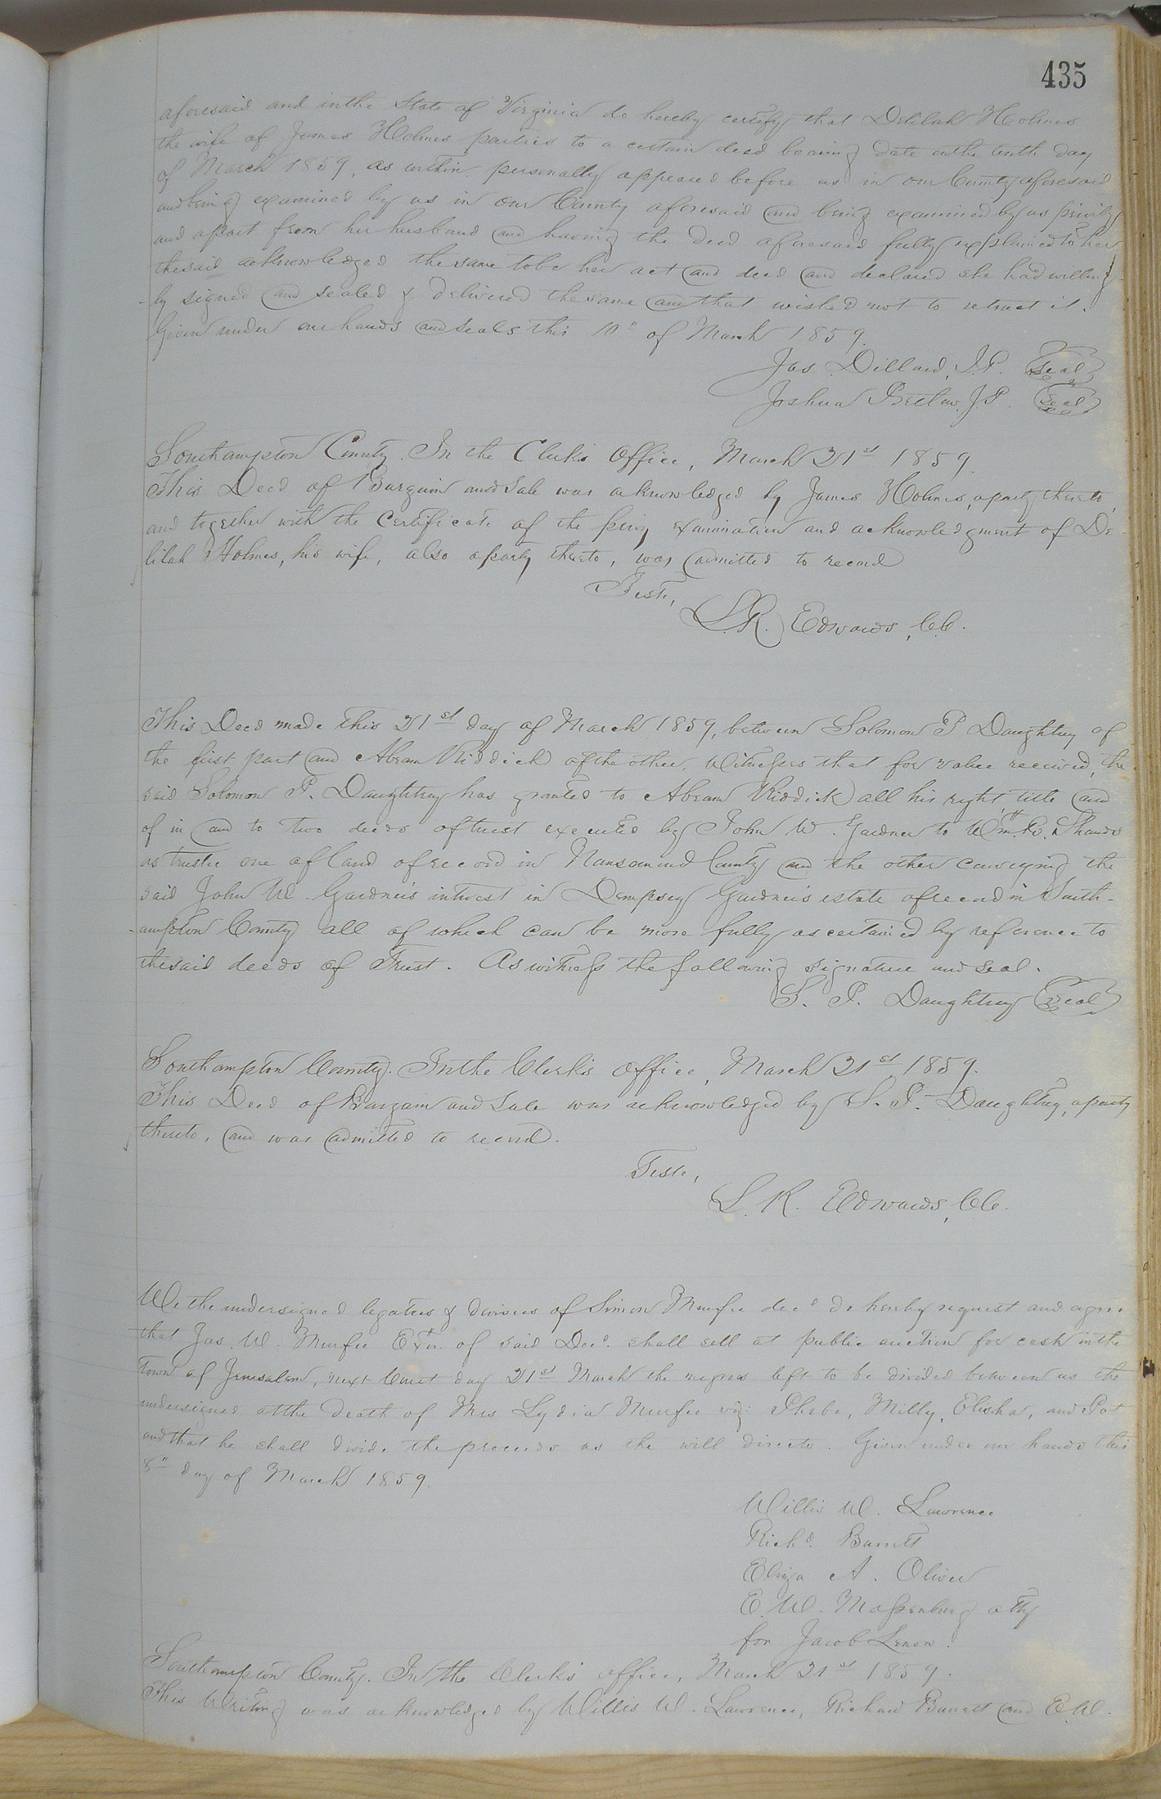 435
aforesaid and in the State of Virginia do hereby certify that Delilah Holmes
the wife of James Holmes parties to a certain deed bearing date on the tenth day
of March 1859, as within personally appeared before us in our County aforesaid
and being examined by us in our County aforesaid and being examined by us privily
and apart from her husband and having the deed aforesaid fully explained to her
the said acknowledged the same to be her act and deed and declared she had willing-
-ly signed and sealed & delivered the same and that wished not to retract it.
Given under our hands and seals this 10" of March 1859.
Jas. Dillard, J.P. Seal
Joshua J.P. Seal
Southampton County. In the Clerk's Office, March 21st 1859.
This Deed of Bargain and Sale was acknowledged by James Holmes, a party thereto,
and together with the Certificate of the privy examination and acknowledgment of De-
lilah Holmes, his wife, also a party thereto, was admitted to record
Teste,
L. R. Edwards, C.C.
This Deed made this 21st day of March 1859, between Solomon P. Daughtrey of
the first part and Abram Riddick of the other. Witnesses that for value received, the
said Solomon P. Daughtrey has granted to Abram Riddick all his right title and
of in and to two deeds of trust executed by John W. Gardner to Wm. H. Shands
as trustee one of land of record in Nansemond County and the other conveying the
said John W. Gardner's interest in Dempsey Gardner's estate of record in South-
-ampton County all of which can be more fully ascertained by reference to
the said deeds of Trust. As witness the following signature and seal.
S. P. Daughtrey Seal
Southampton County. In the Clerk's office, March 21st 1859.
This Deed of Bargain and Sale was acknowledged by S. P. Daughtrey, a party
thereto, and was admitted to record.
Teste,
L. R. Edwards, C.C.
We the undersigned legatees & devisees of Simon Murfee decd. do hereby request and agree
that Jas. W. Murfee Exr. of said Decd. shall sell at public auction for cash in the
town of Jerusalem, next Court day 21st March the negroes left to be divided between us the
undersigned at the death of Mrs Lydia Murfee viz: Phebe, Milly, Elisha, and Pat
and that he shall divide the proceeds as the will directs. Given under our hands this
8th day of March 1859.
Willis W. Lawrence
Richd. Barrett
Eliza A. Oliver
E. W. Massenburg atty
for Jacob
Southampton County. In the Clerk's office, March 21st 1859.
This Writing was acknowledged by Willis W. Lawrence, Richard Barrett and E. W.